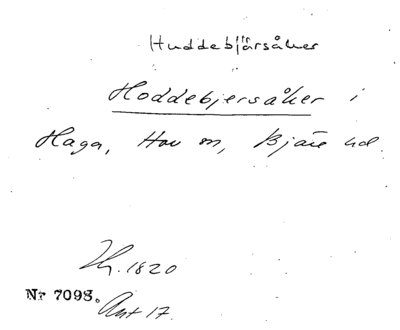 Huddebjärsåker
Hoddebjersåker i
Haga, Hov sn, Bjäre hd.
1820
Nr 7098.
Akt 17.